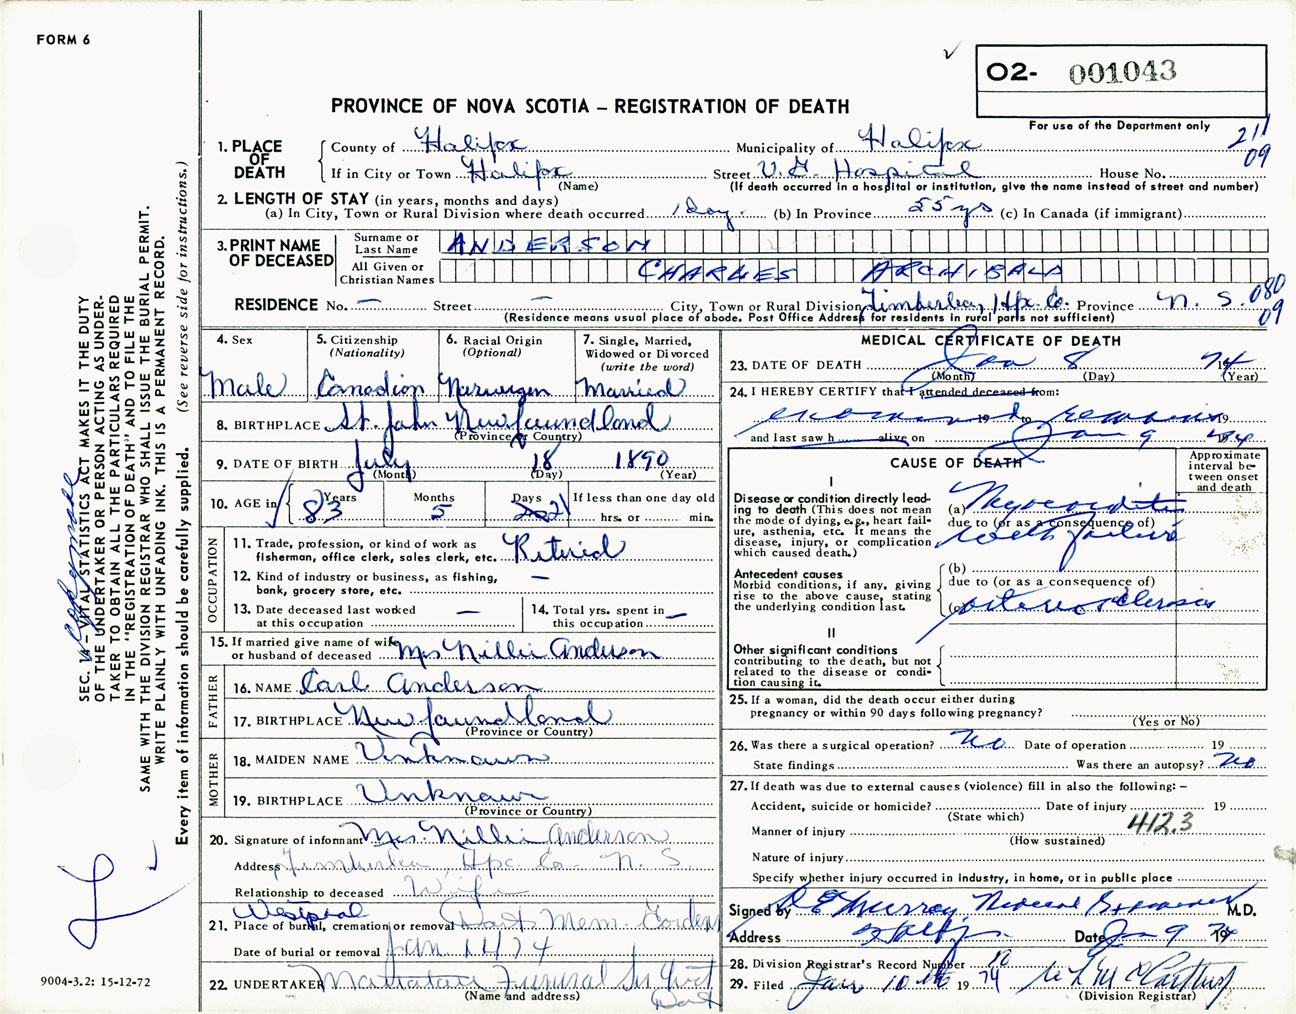 FORM 6
O2- 001043
For use of the Department only
PROVINCE OF NOVA SCOTIA – REGISTRATION OF DEATH
211
09
1. PLACE OF DEATH
County of Halifax Municipality of Halifax
If in City or Town Halifax Street V.G. Hospital House No.
(Name) (If death occurred in a hospital or institution, give the name instead of street and number)
2. LENGTH OF STAY (in years, months and days)
(a) In City, Town or Rural Division where death occurred 1 day. (b) In Province 55 yrs (c) In Canada (if immigrant)
3. PRINT NAME OF DECEASED
Surname or Last Name ANDERSON
All Given or Christian Names CHARLES ARCHIBALD
RESIDENCE No. — Street — City, Town or Rural Division Timberlea, Hfx. Co. Province N. S. 080
09
(Residence means usual place of abode. Post Office Address for residents in rural parts not sufficient)
4. Sex
Male
5. Citizenship
(Nationality)
Canadian
6. Racial Origin
(Optional)
Norwegen
7. Single, Married,
Widowed or Divorced
(write the word)
Married
8. BIRTHPLACE St. John Newfoundland
(Province or Country)
9. DATE OF BIRTH July 18 1890
(Month) (Day) (Year)
10. AGE in
Years 83
Months 5
Days 21
If less than one day old
hrs. or min.
OCCUPATION
11. Trade, profession, or kind of work as
fisherman, office clerk, sales clerk, etc. Retired
12. Kind of industry or business, as fishing,
bank, grocery store, etc. —
13. Date deceased last worked
at this occupation —
14. Total yrs. spent in
this occupation —
15. If married give name of wife
or husband of deceased Mrs Nillie Anderson
FATHER
16. NAME Carl Anderson
17. BIRTHPLACE Newfoundland
(Province or Country)
MOTHER
18. MAIDEN NAME Unknown
19. BIRTHPLACE Unknown
(Province or Country)
20. Signature of informant Mrs. Nillie Anderson
Address Timberlea, Hfx. Co. N. S.
Relationship to deceased Wife
Westphal
21. Place of burial, cremation or removal Dart Mem. Gardens
Date of burial or removal JAN 14 74
22. UNDERTAKER Funeral
(Name and address) Dart
MEDICAL CERTIFICATE OF DEATH
23. DATE OF DEATH Jan 8 1974
(Month) (Day) (Year)
24. I HEREBY CERTIFY that I attended deceased from:
examined 19 to remains 19
and last saw h alive on Jan 9 1974
CAUSE OF DEATH
Approximate
interval be-
tween onset
and death
I
Disease or condition directly lead-
ing to death (This does not mean
the mode of dying, e.g., heart fail-
ure, asthenia, etc. It means the
disease, injury, or complication
which caused death.)
(a) Myocarditis
due to (or as a consequence of)
with failure
Antecedent causes
Morbid conditions, if any, giving
rise to the above cause, stating
the underlying condition last.
(b)
due to (or as a consequence of)
(c) arteriosclerosis
II
Other significant conditions
contributing to the death, but not
related to the disease or condi-
tion causing it.
25. If a woman, did the death occur either during
pregnancy or within 90 days following pregnancy?
(Yes or No)
26. Was there a surgical operation? No Date of operation 19
State findings Was there an autopsy? No
27. If death was due to external causes (violence) fill in also the following: –
Accident, suicide or homicide? Date of injury 19
(State which)
412.3
Manner of injury
(How sustained)
Nature of injury
Specify whether injury occurred in industry, in home, or in public place
Signed by R E Murray, Medical Examiner M.D.
Address Halifax Date Jan 9 1974
28. Division Registrar's Record Number 10
29. Filed Jan 10th 1974
(Division Registrar)
SEC. 14 – VITAL STATISTICS ACT MAKES IT THE DUTY
OF THE UNDERTAKER OR PERSON ACTING AS UNDER-
TAKER TO OBTAIN ALL THE PARTICULARS REQUIRED
IN THE "REGISTRATION OF DEATH" AND TO FILE THE
SAME WITH THE DIVISION REGISTRAR WHO SHALL ISSUE THE BURIAL PERMIT.
WRITE PLAINLY WITH UNFADING INK. THIS IS A PERMANENT RECORD.
Every item of information should be carefully supplied. (See reverse side for instructions.)
9004-3.2: 15-12-72